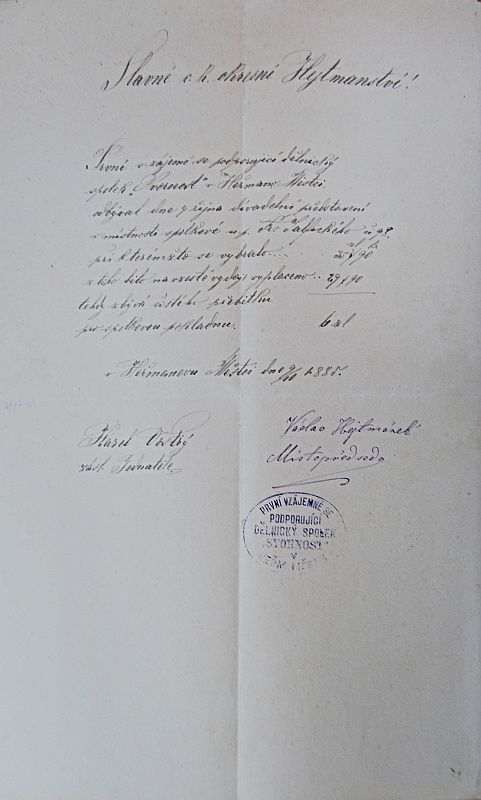 Slavné c. k. okresní Hejtmanství!
První vzájemně se podporující dělnický
spolek "Svornost" v Heřman. Městci
odbýval dne 9 října divadelní představení
v místnosti spolkové u p.
při kterémžto se vybralo....
zl k
35 90
z toho kito na vzešlé výdaje vyplaceno.. 29 90
tedy zbývá čistého přebytku
pro spolkovou pokladnu. 6 zl
v Heřmanovu Městci dne 9/10 1885.
Karel
zást. Jednatele
Václav Hejtmánek
Místopředseda
PRVNÍ VZÁJEMNĚ SE
PODPORUJÍCÍ
DĚLNICKÝ SPOLEK
"SVORNOST"
V